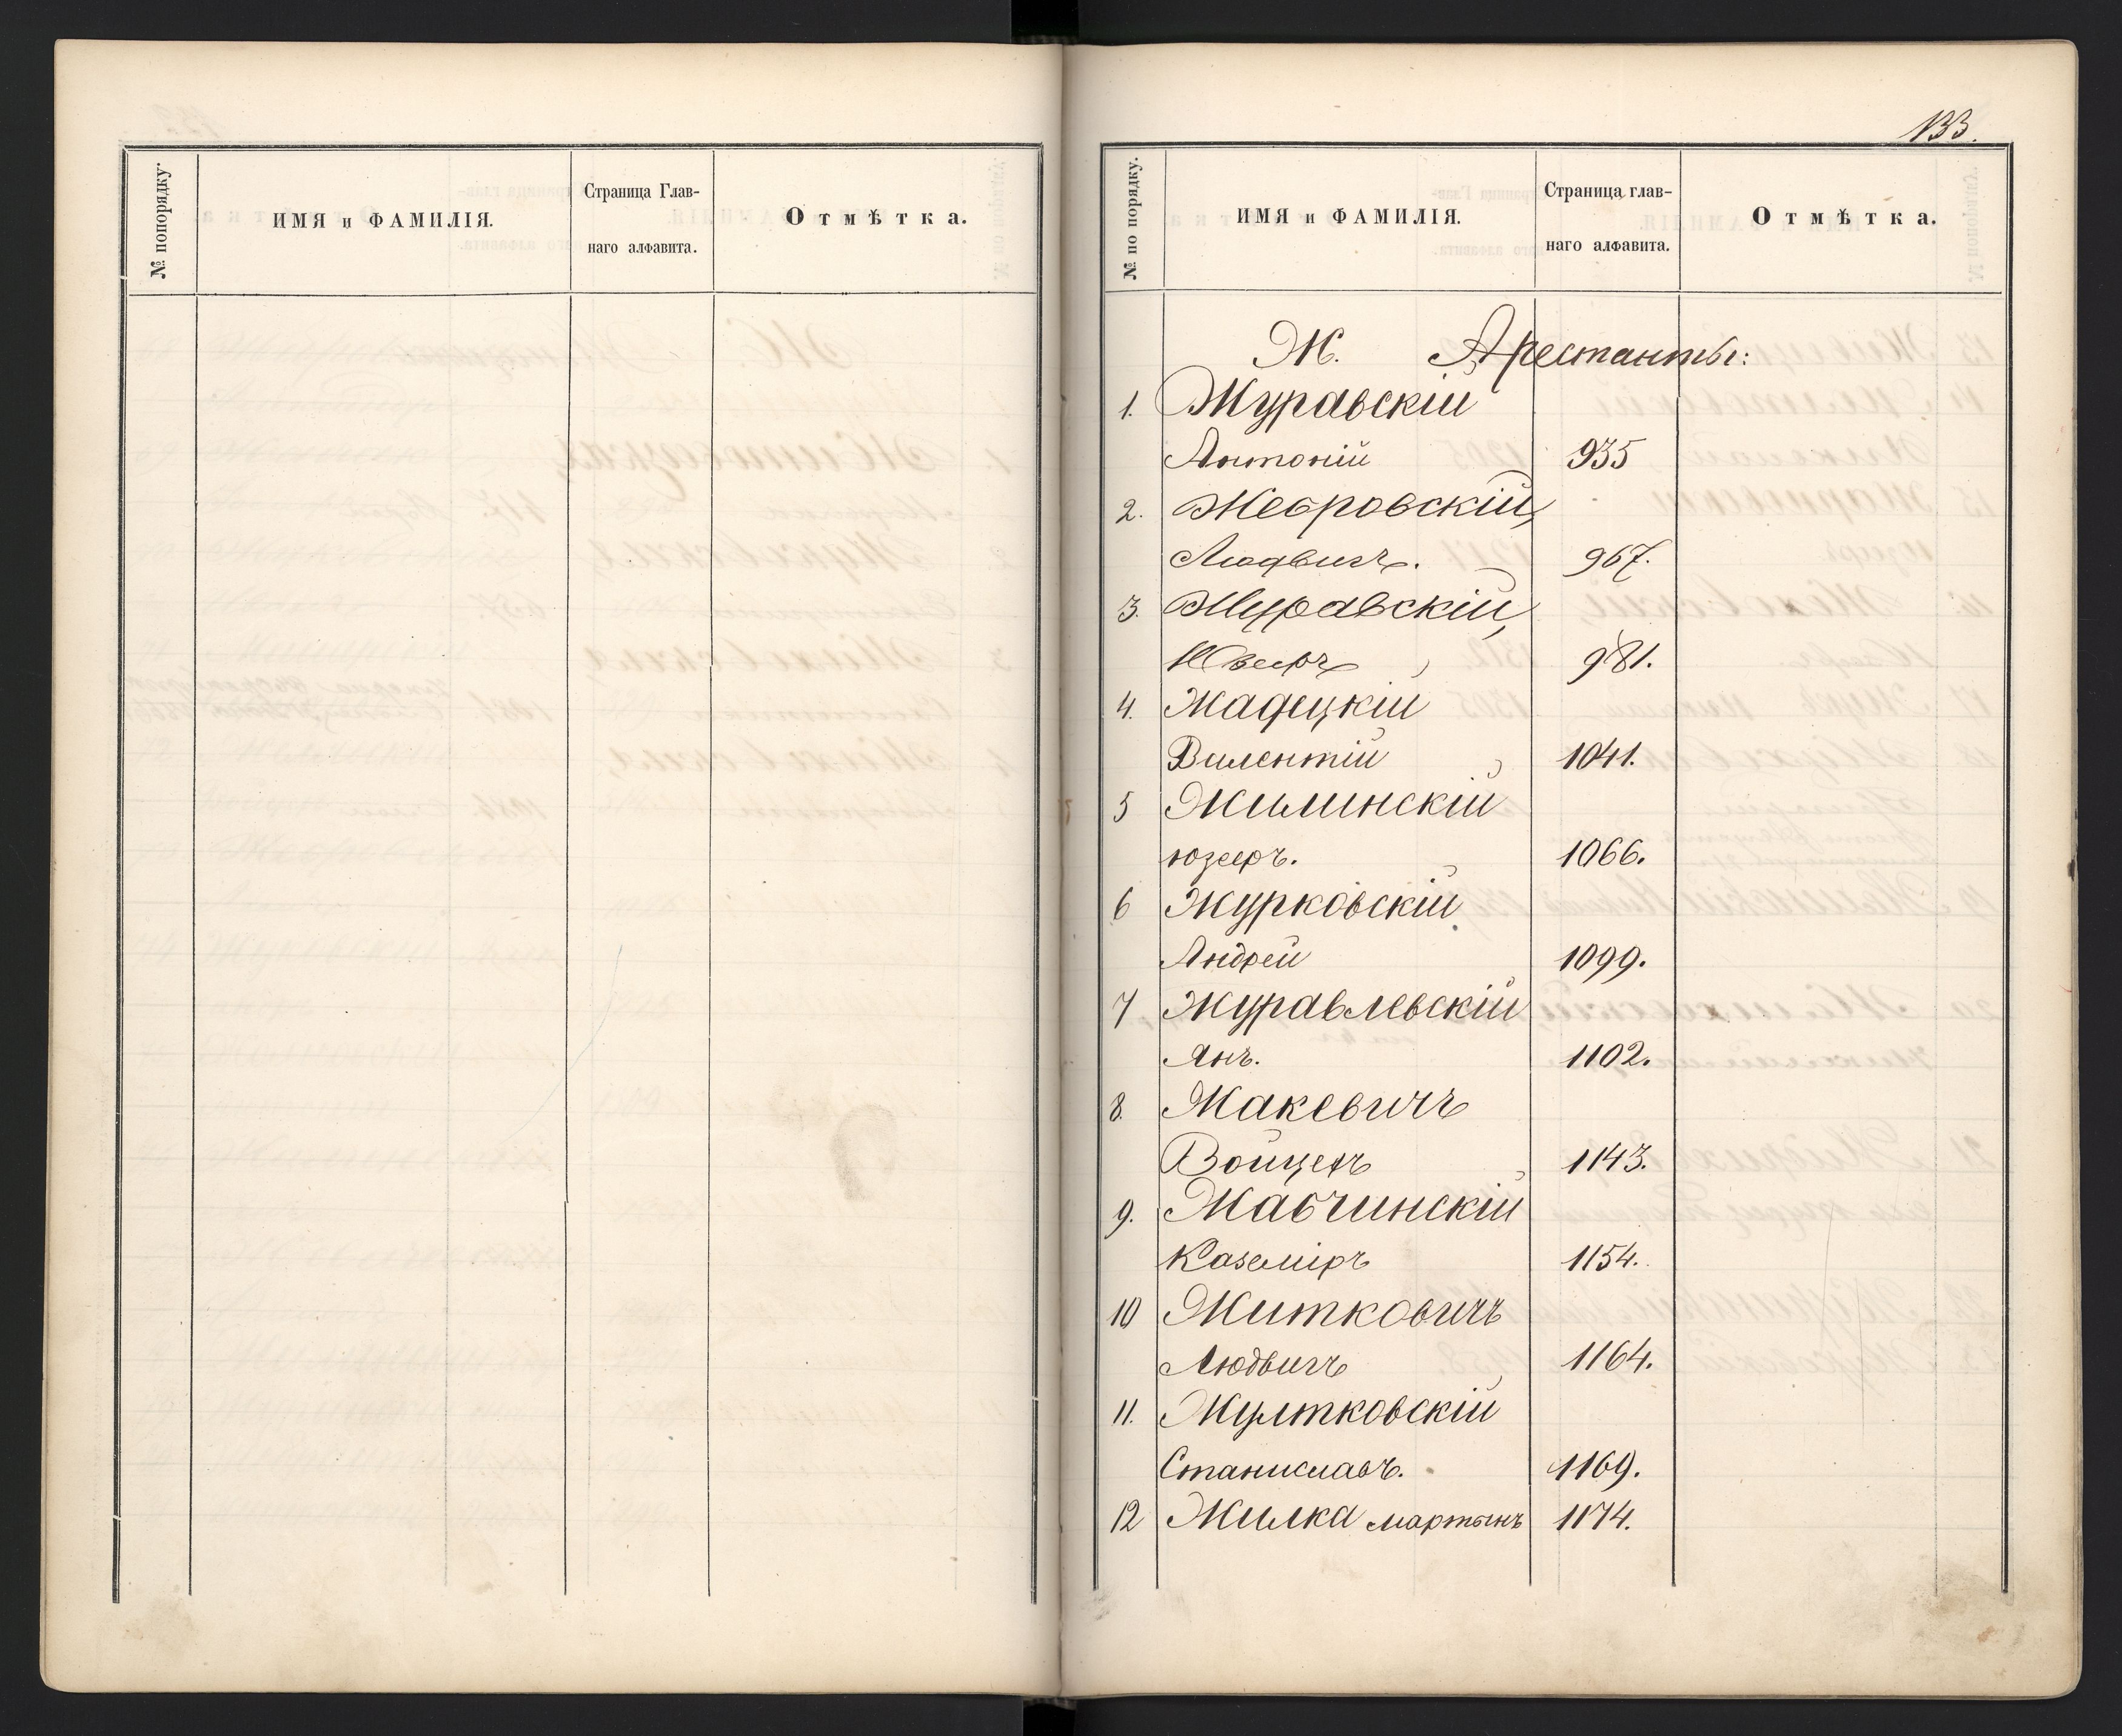 № попорядку.
ИМЯ и ФАМИЛІЯ.
Страница Глав-
наго алфавита.
Отмѣтка.
133.
№ по порядку.
ИМЯ и ФАМИЛІЯ.
Страница глав-
наго алфавита.
Отмѣтка.
Ж. Арестанты:
1. Журавскій
Антоній 935
2. Жебровскій,
Людвигъ. 967.
3. Журавскій,
Юзефъ 981.
4. Жадецкій
Вилентій 1041.
5 Жилинскій
юзефъ. 1066.
6 Журковскій
Андрей 1099.
7 Журавлевскій
Янъ. 1102.
8. Жакевичъ
Войцехъ 1143.
9. Жабчинскій
Каземіръ 1154.
10 Житковичъ
Людвигъ 1164.
11. Жултковскій
Станиславъ. 1169.
12 Жилка мартынъ 1174.